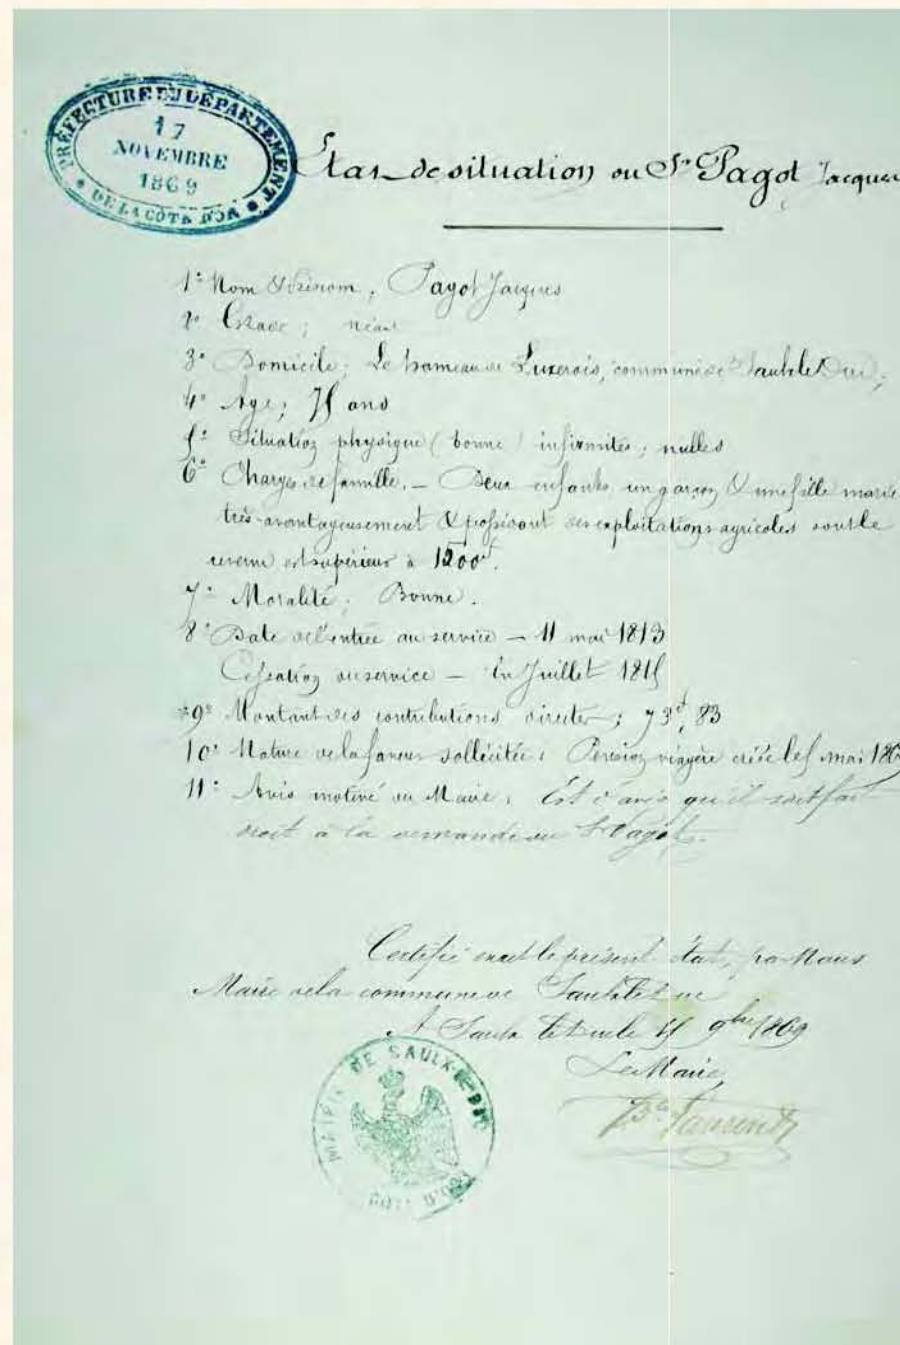 PRÉFECTURE DU DÉPARTEMENT
17
NOVEMBRE
1869
DE LA CÔTE D'OR
État de situation du Sr Pagot Jacques
1° Nom & Prénom, Pagot Jacques
2° Grade ; néant
3° Domicile ; Le hameau de Luxerois, commune de Saulx le Duc ;
4° Age ; 75 ans
5° Situation physique (bonne) infirmités ; nulles
6° Charges de famille. — Deux enfants un garçon & une fille mariés
très-avantageusement & possédant des exploitations agricoles dont le
revenu est supérieur à 1200f.
7° Moralité ; Bonne.
8° Date de l'entrée au service — 11 mai 1813
Cessation du service — En Juillet 1815
9° Montant des contributions directes ; 73f, 83
10° Nature de la faveur sollicitée : Pension viagère créée le 5 mai 1869
11° Avis motivé du Maire ; Est d'avis qu'il soit fait
droit à la demande du Sr Pagot.
Certifié exact le présent état, par Nous
Maire de la commune de Saulx le Duc
A Saulx le Duc le 15 9bre 1869
Le Maire,
Laurent
MAIRIE DE SAULX-LE-DUC
CÔTE D'OR